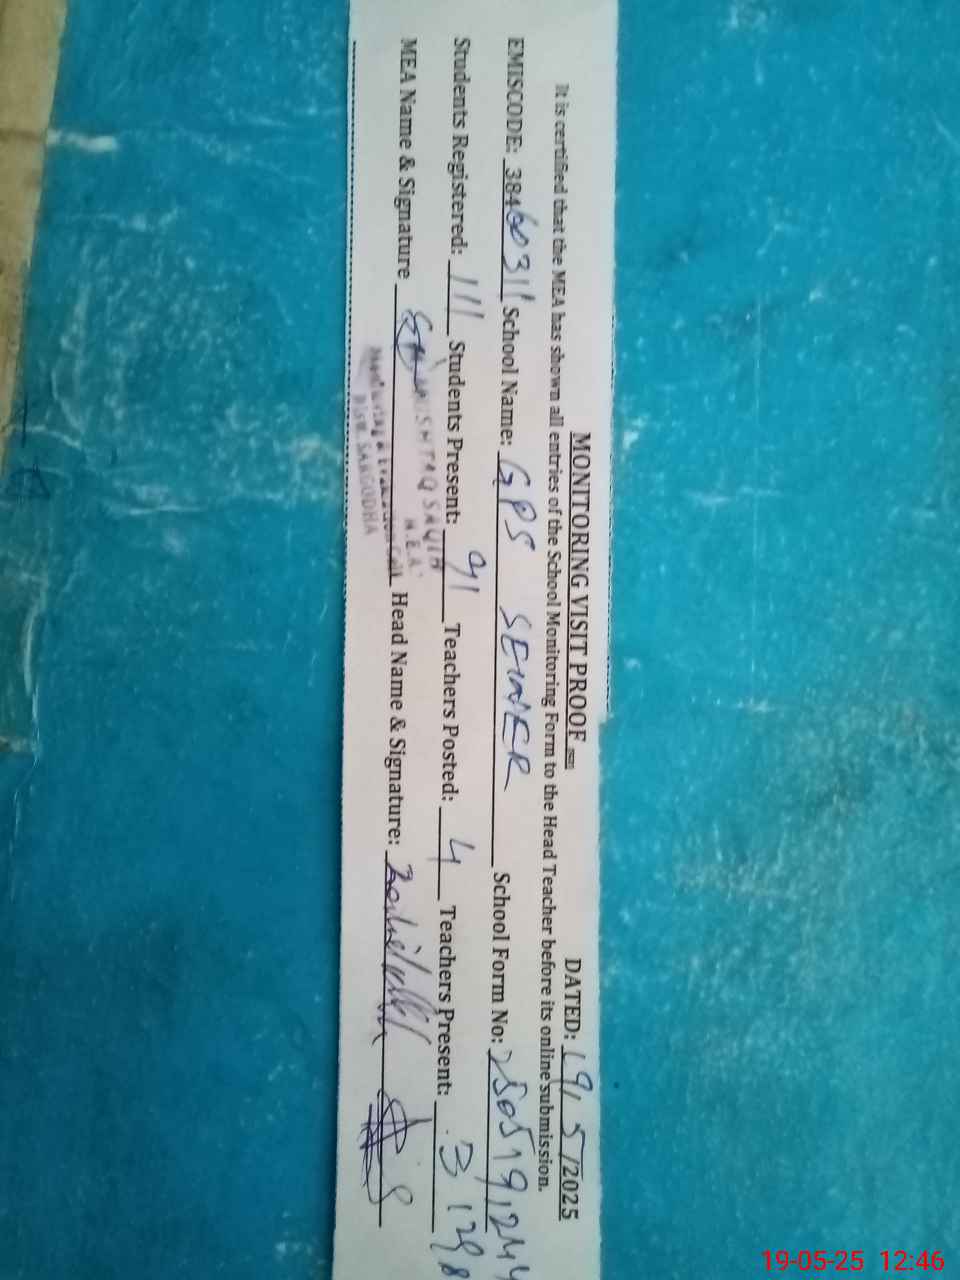 MONITORING VISIT PROOF DATED: 19/ 5 /2025
It is certified that the MEA has shown all entries of the School Monitoring Form to the Head Teacher before its online submission.
EMISCODE: 38460311 School Name: GPS School Form No:
Students Registered: 111 Students Present: 91 Teachers Posted: 4 Teachers Present: 3
MEA Name & Signature Head Name & Signature:
MUSHTAQ SAQIB
M.E.A
Monitoring & Evaluation Cell
Distt. SARGODHA
19-05-25 12:46